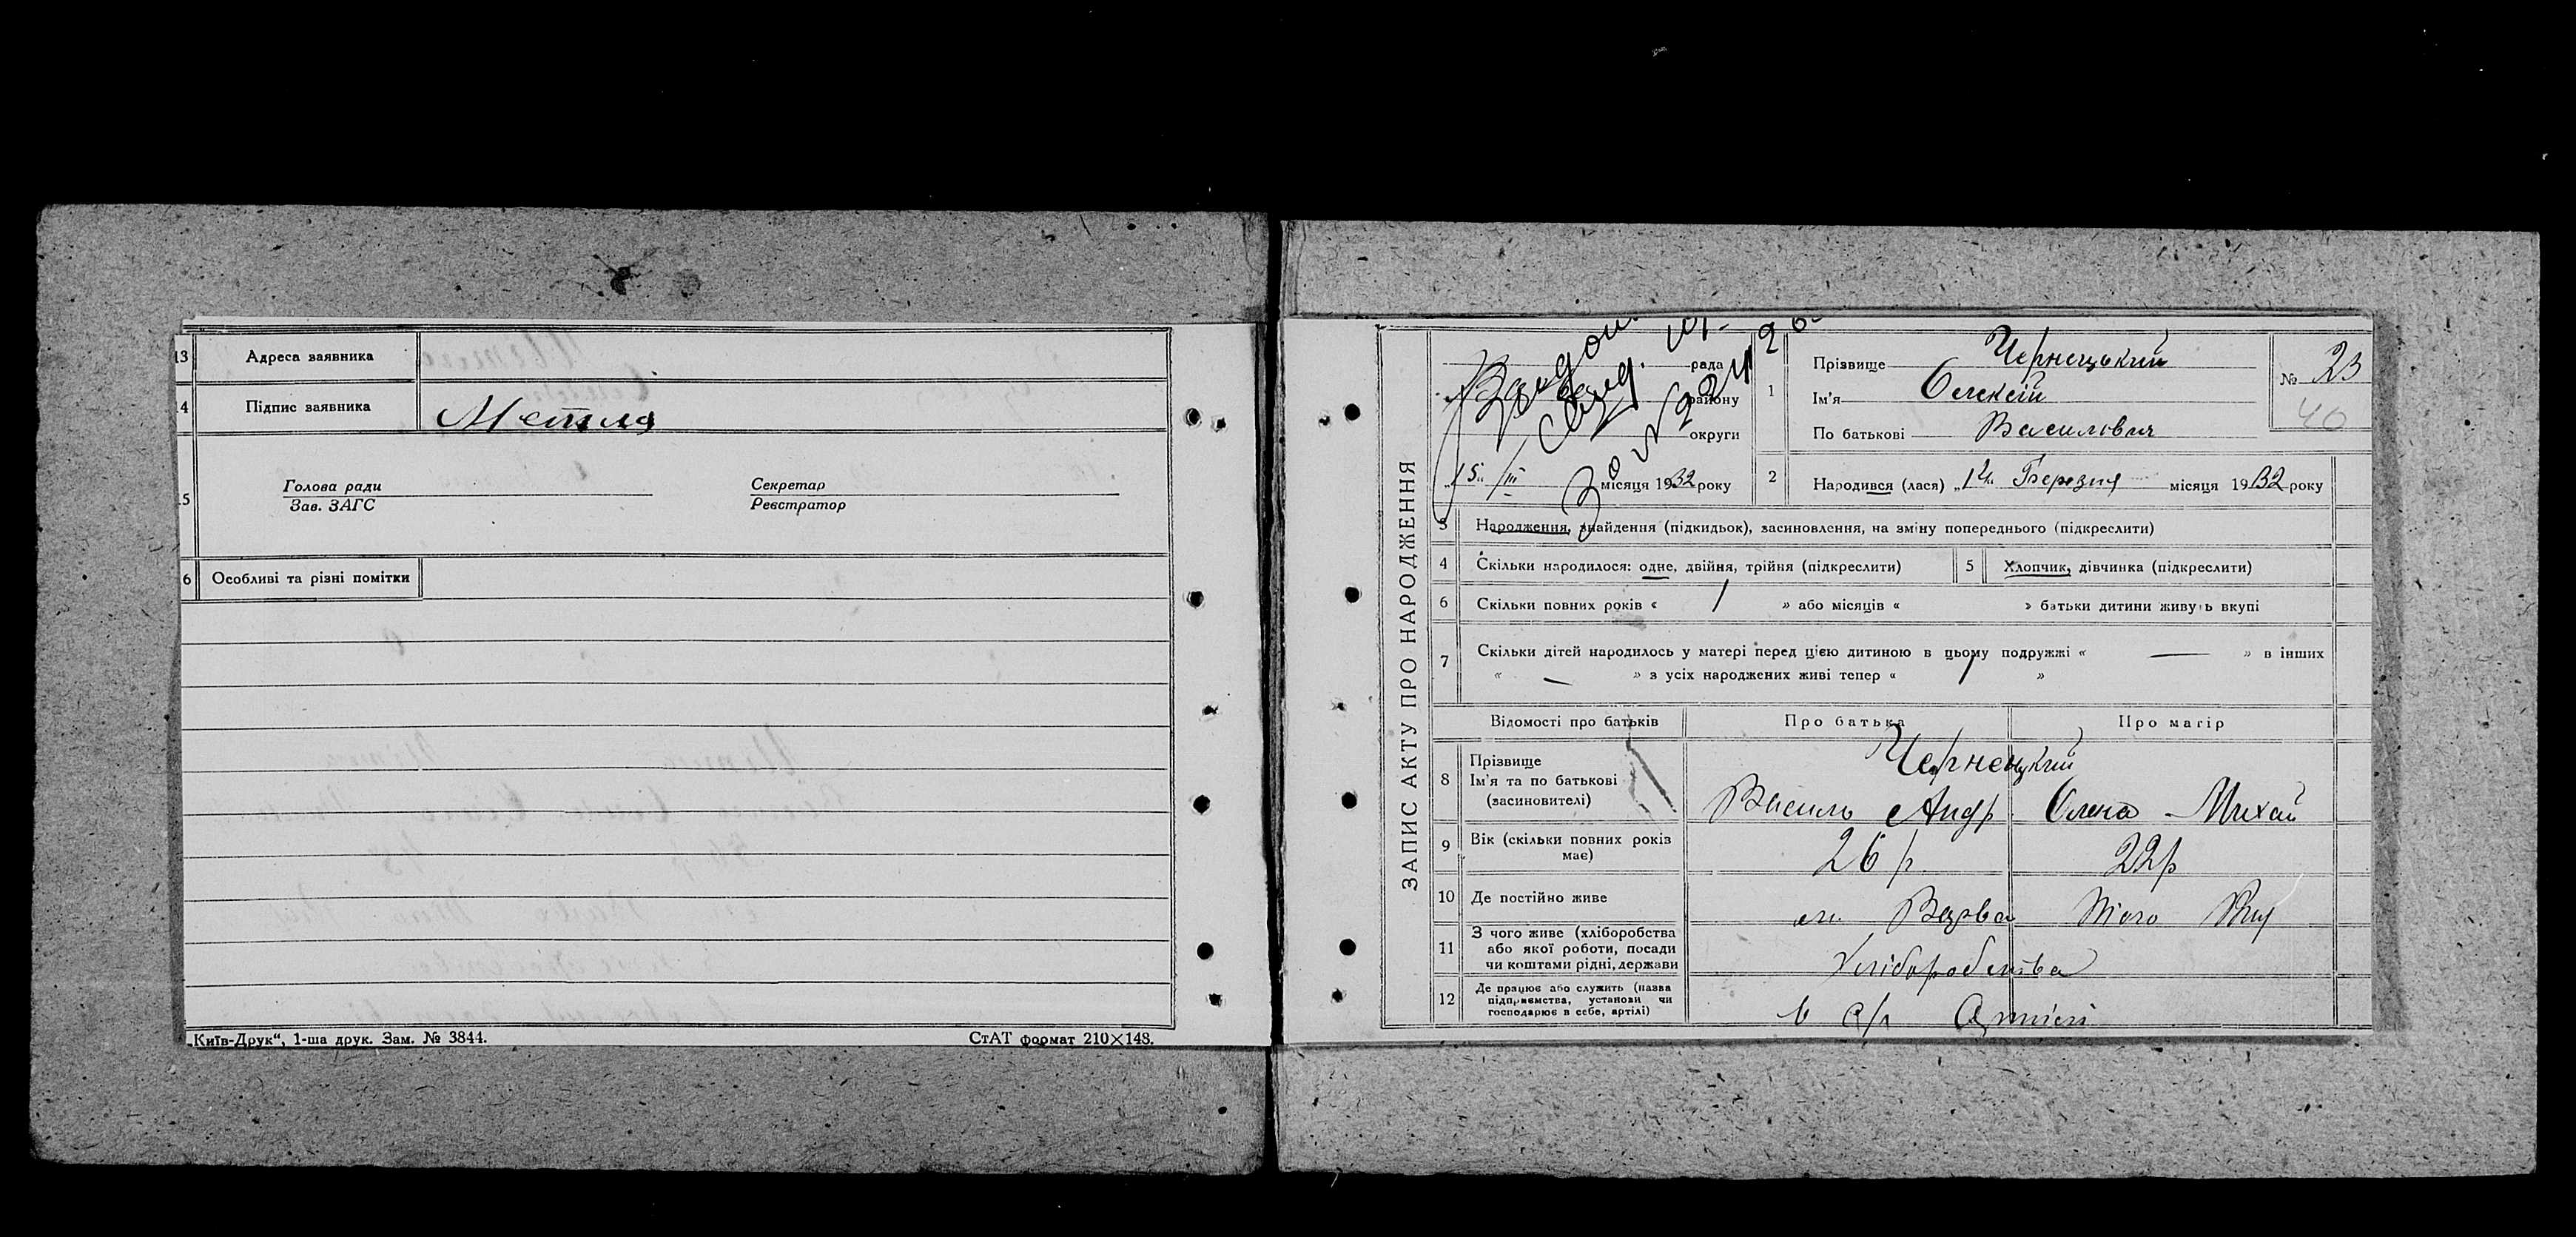 13 Адреса заявника
4 Підпис заявника Метла
5 Голова ради Секретар
Зав. ЗАГС Реєстратор
6 Особливі та різні помітки
„Київ-Друк“, 1-ша друк. Зам. № 3844. СтАТ формат 210×148.
ЗАПИС АКТУ ПРО НАРОДЖЕННЯ
рада
району
округи
„15„ III місяця 1932 року
1 Прізвище Чернецький
Ім'я Олексій
По батькові Васильвич
№ 23
40
2 Народився (лася) „12„ Березня місяця 1932 року
3 Народження, знайдення (підкидьок), засиновлення, на зміну попереднього (підкреслити)
4 Скільки народилося: одне, двійня, трійня (підкреслити) 5 Хлопчик, дівчинка (підкреслити)
6 Скільки повних років « 1 » або місяців « » батьки дитини живуть вкупі
7 Скільки дітей народилось у матері перед цією дитиною в цьому подружжі « — » в інших
« — » з усіх народжених живі тепер « 1 »
Відомості про батьків Про батька Про матір
8 Прізвище
Ім'я та по батькові
(засиновителі)
Чернецький
Василь Андр Олена Михай
9 Вік (скільки повних років має) 26 р. 22 р
10 Де постійно живе
11 З чого живе (хліборобства
або якої роботи, посади
чи коштами рідні, держави
Хліборобства
12 Де працює або служить (назва
підприємства, установи чи
господарює в себе, артілі)
в с/г Артілі